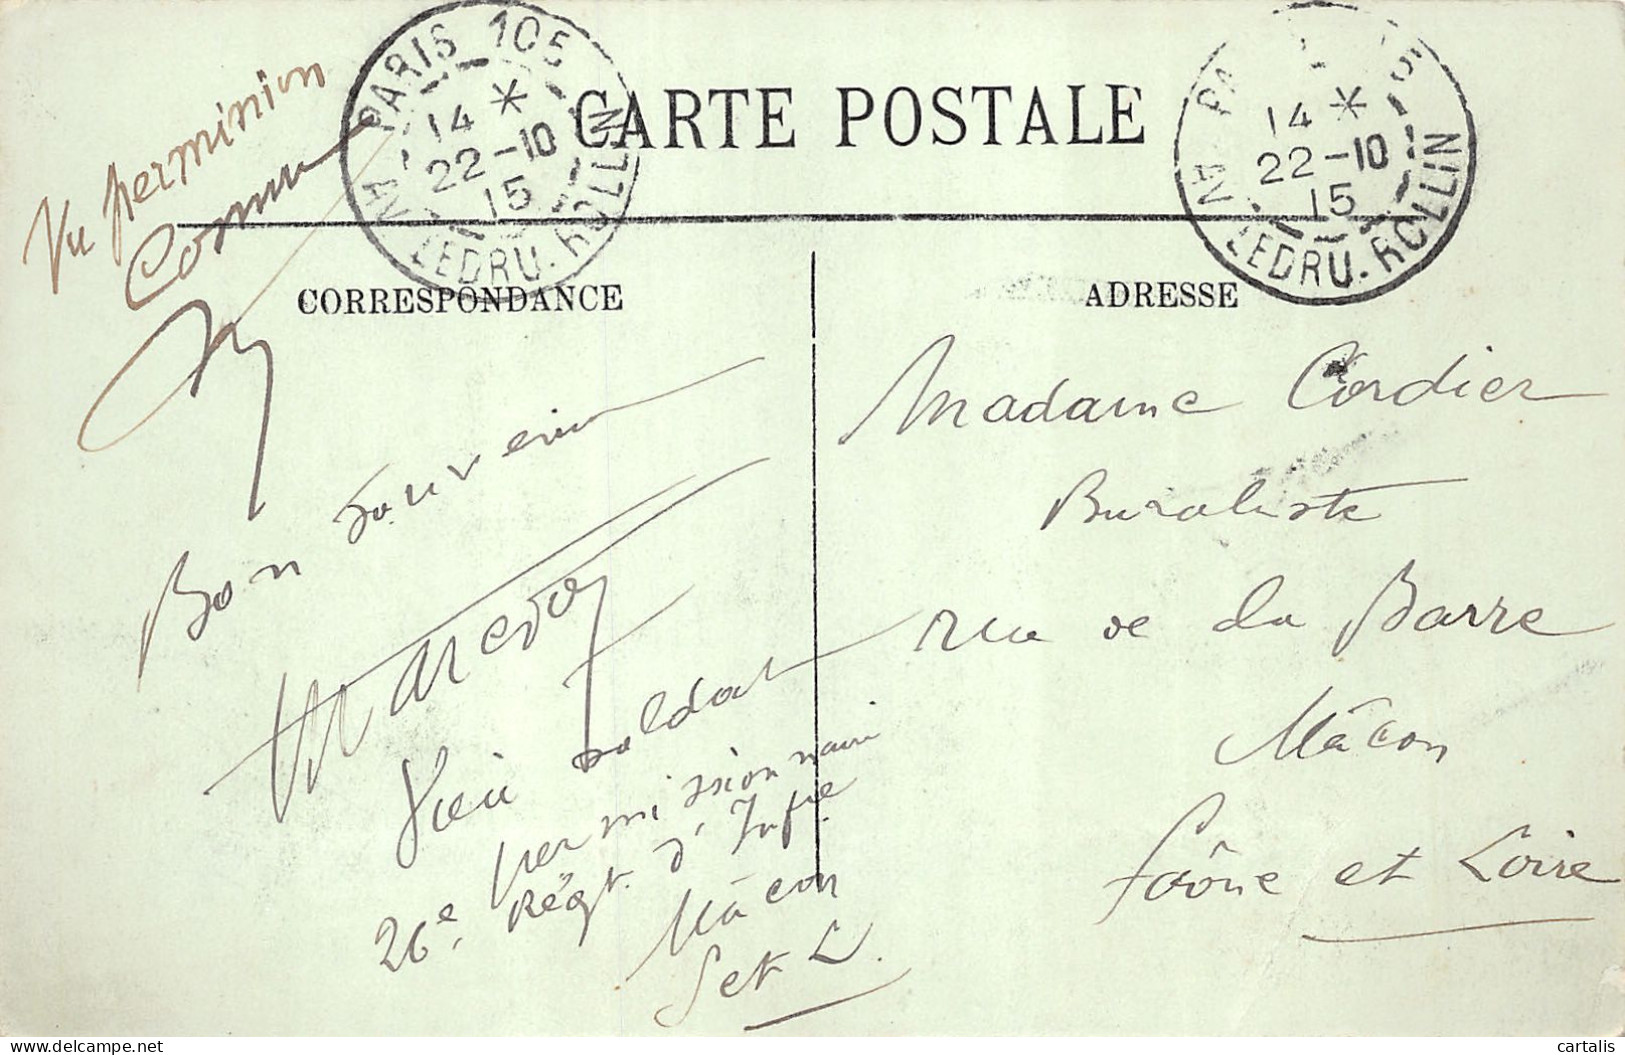 PARIS 105
14 *
22-10
15
AV. LEDRU-ROLLIN
CARTE POSTALE
14 *
22-10
15
LEDRU-ROLLIN
Vu permission
CORRESPONDANCE
ADRESSE
Bon souvenir
soldat
permissionnaire
26e. Régt. d'Infie
Mâcon
S et L.
Madame Cordier
Buraliste
rue de la Barre
Mâcon
Saône et Loire
delcampe.net
cartalis